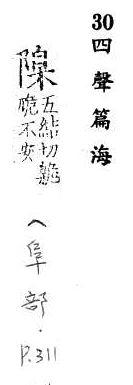 30四聲篇海
五結切臲
不安
〈阜部·P.311